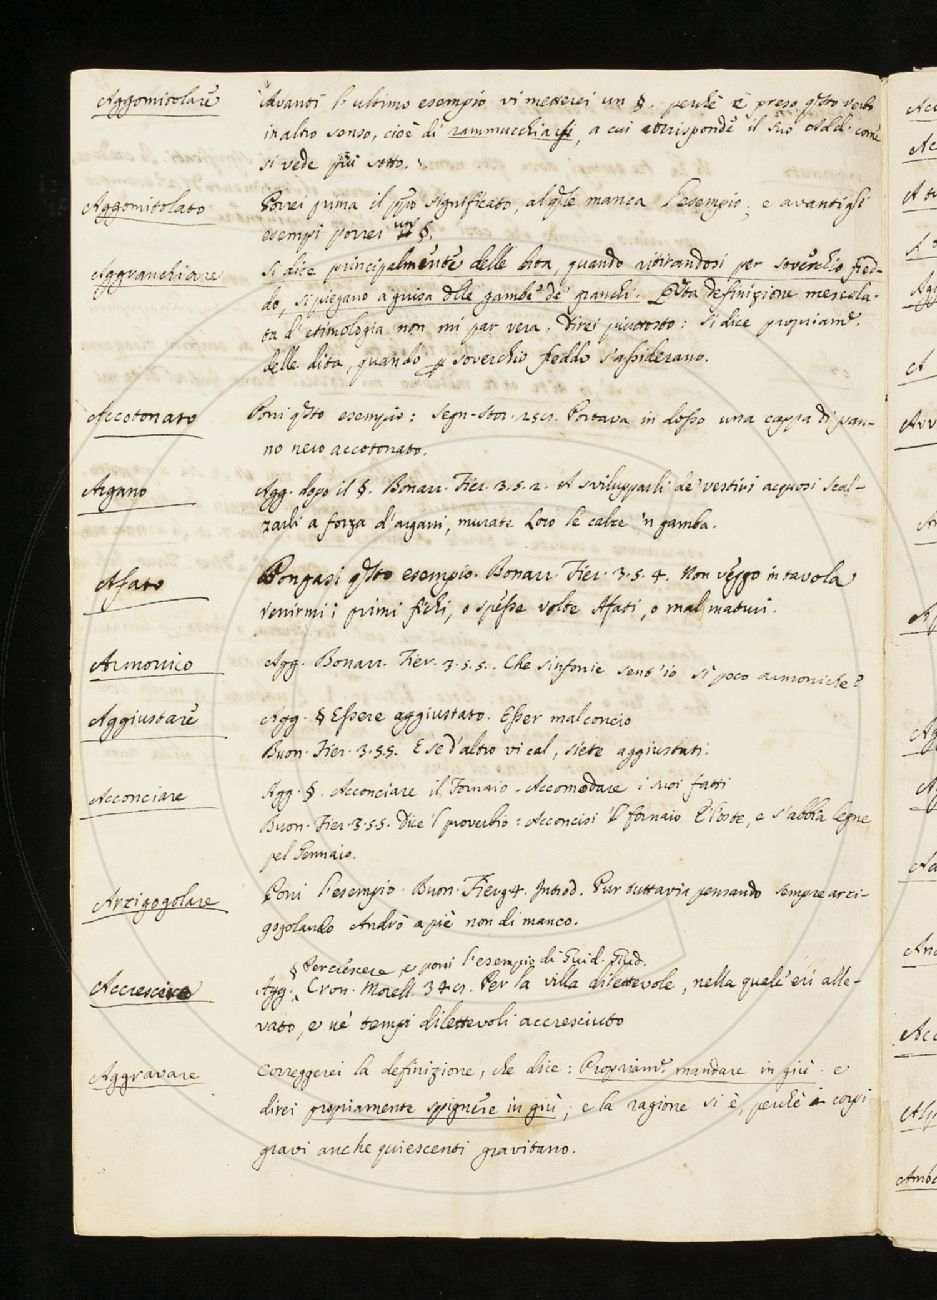 Aggomitolare Avanti l'ultimo esempio vi metterei un §. perchè è preso q̃sto verbo
in altro senso, cioè di rammucchiarsi, a cui corrisponde il suo Add. come
si vede più sotto.
Aggomitolato Porrei prima il pp̃io significato, al q̃le manca l'esempio; e avanti gli
esempi porrei un §.
Aggranchiare Si dice principalmente delle dita, quando ritirandosi per soverchio fred-
do, si piegano a guisa delle gambe de' granchi. Q̃sta definizione mescola-
ta d'etimologia non mi par vera. Direi piuttosto: si dice propriam.e
delle dita, quando p soverchio freddo s'assiderano.
Accotonato Poni q̃sto esempio: Segn. Stor. Portava in dosso una cappa di pan-
no nero accotonato.
Argano Agg. dopo il §. Bonarr. Fier. 3. 5. 2. A svilupparli de' vestiri acquosi Scal-
zarli a forza d'argani, murate Loro le calze 'n gamba.
Afato Pongasi q̃sto esempio. Bonarr. Fier. 3. 5. 4. Non veggo in tavola
venirmi i primi fichi, o spesse volte Afati, o mal maturi.
Armonico Agg. Bonarr. Fier. 3. 5. 5. Che sinfonie sent'io sì poco armoniche?
Aggiustare Agg. § Essere aggiustato. Esser malconcio
Buon. Fier. 3. 5 5. E se d'altro vi cal, siete aggiustati.
Acconciare Agg. §. Acconciare il Fornaio. Accomodare i suoi fatti
Buon. Fier. 3. 5 5. Dice 'l proverbio: Acconcisi 'l fornaio E l'oste, e s'abbia legne
pel Gennaio.
Arzigogolare Poni l'esempio. Buon. Fier. 4. Introd. Pur tuttavia pensando Sempre arzi-
gogolando Andrò a piè non di manco.
§ Per crescere, e poni l'esempio di Guid. Giud.
Accrescere Agg. Cron. Morell. Per la villa dilettevole, nella quale eri alle-
vato, e ne' tempi dilettevoli accresciuto
Aggravare Correggerei la definizione, che dice: Propriam.e mandare in giù. e
direi propriamente spignere in giù; e la ragione si è, perchè i corpi
gravi anche quiescenti gravitano.